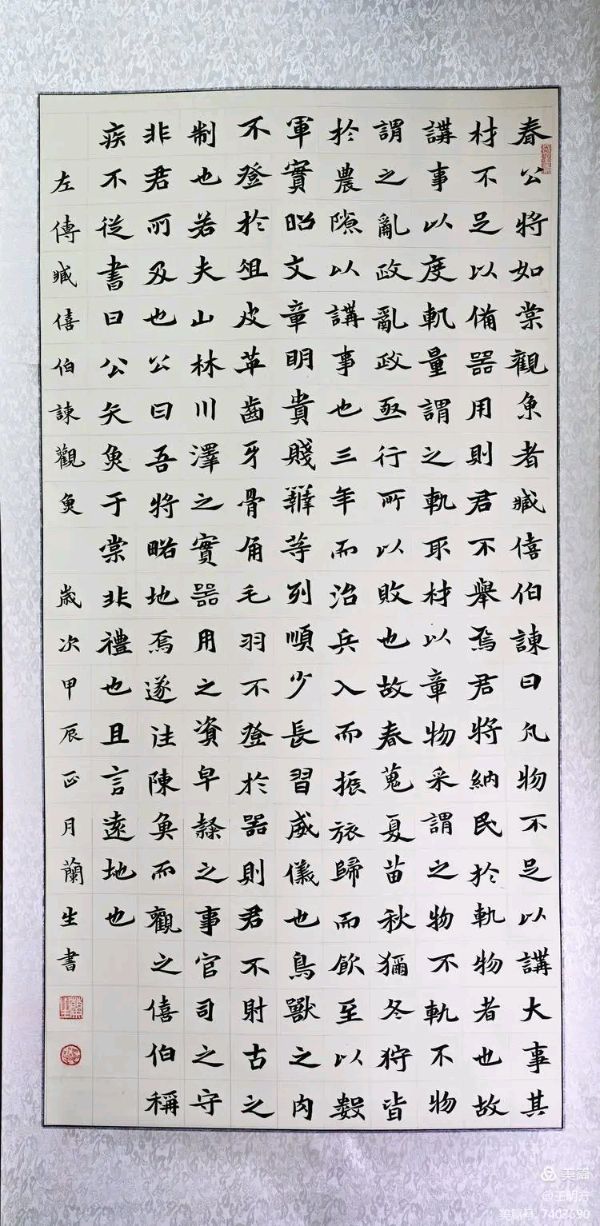 春公將如棠觀魚者臧僖伯諫曰凡物不足以講大事其
材不足以備器用則君不舉焉君將納民於軌物者也故
講事以度軌量謂之軌取材以章物采謂之物不軌不物
謂之亂政亂政亟行所以敗也故春蒐夏苗秋獮冬狩皆
於農隙以講事也三年而治兵入而振旅歸而飲至以數
軍實昭文章明貴賤辨等列順少長習威儀也鳥獸之肉
不登於俎皮革齒牙骨角毛羽不登於器則君不射古之
制也若夫山林川澤之實器用之資皁隸之事官司之守
非君所及也公曰吾將略地焉遂往陳魚而觀之僖伯稱
疾不從書曰公矢魚于棠非禮也且言遠地也
左傳臧僖伯諫觀魚 歲次甲辰正月蘭生書
美篇